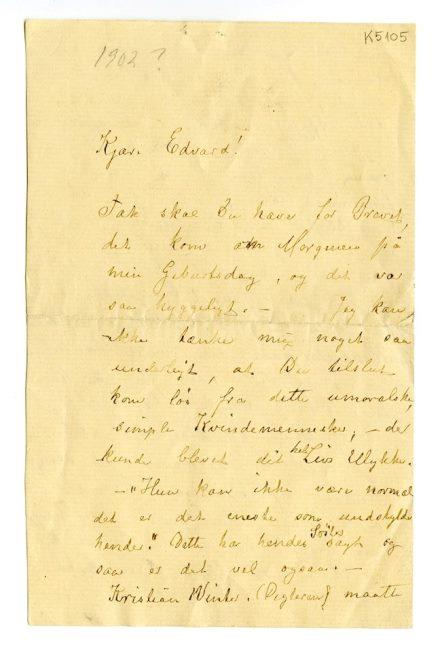 K5105
1902?
Kjære Edvard!
Tak skal Du have for Brevet,
det kom om Morgenen på
min Geburtsdag, og det va
saa hyggeligt. – Jeg kan
ikke tænke mig noget saa
underligt, at Du tilslut
kom løs fra dette umoralske,
simple Kvindemenneske, – de
kunde blevet dit hele Livs Ulykke.
– "Hun kan ikke være normal
det er det eneste som undskylder
hende." Dette har hendes Søster sagt og
saa er det vel ogsaa. –
Kristian Winter. maatte